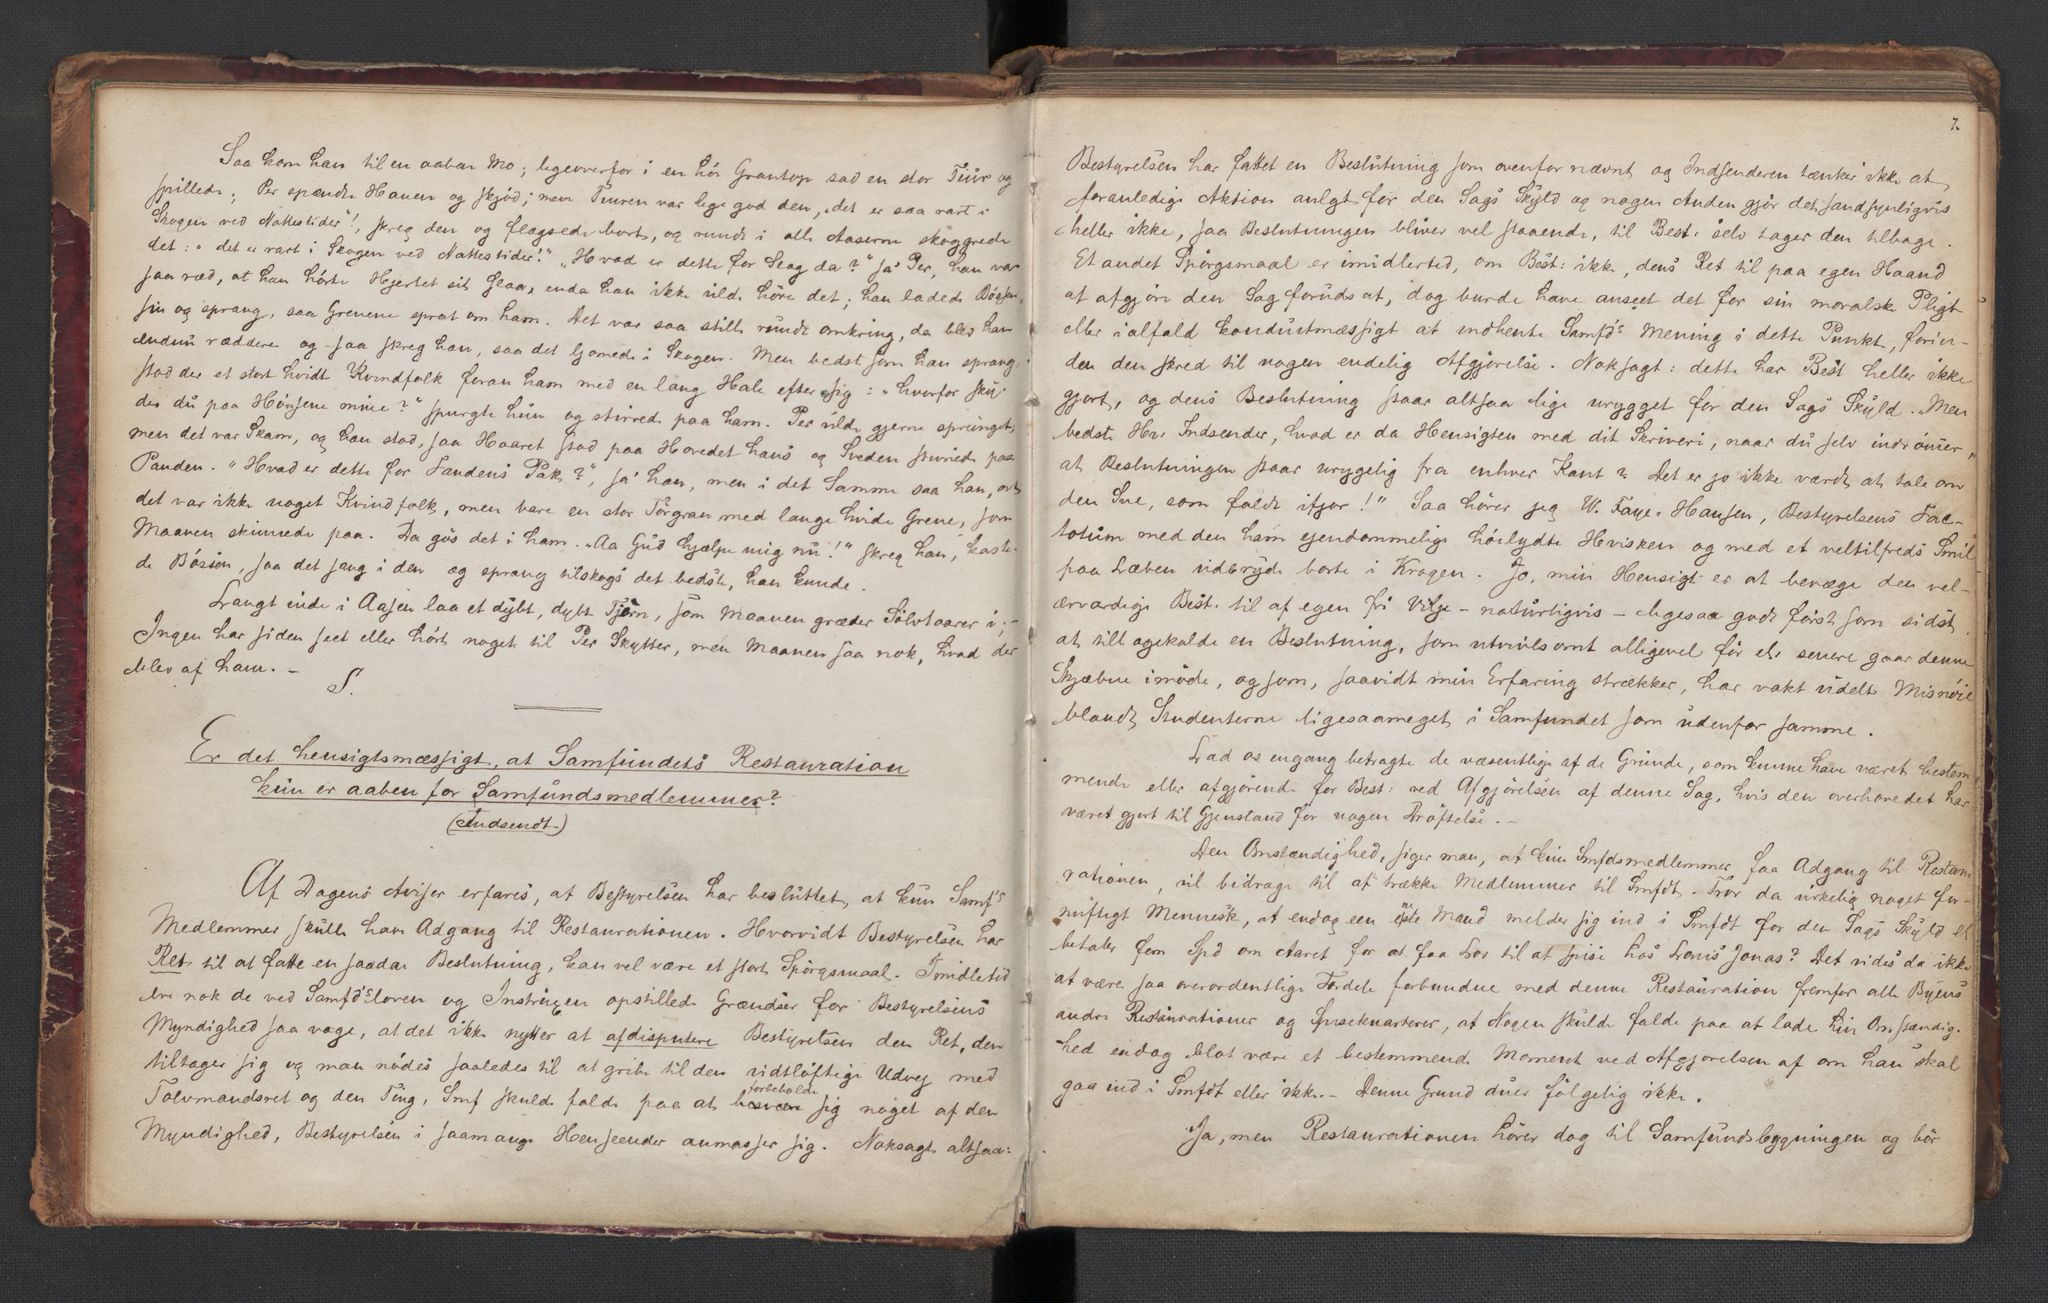 Saa kom han til en aaben Mo; ligeoverfor i en høi Grantop sad en stor Tiur og
spillede; Per spændte Hanen og skjød; men Tiuren var lige god den, „det er saa rart i
Skogen ved Nattestider“!, skreg den og flagsede bort, og rundt i alle Aaserne skoggrede
det: „det er rart i Skogen ved Nattestider!“ „Hvad er dette for Slag da?“ sa' Per, han var
saa ræd, at han hørte Hjertet sit slaa, enda han ikke vilde høre det; han ladede Bøssen
sin og sprang, saa Grenene sprat om ham. Det var saa stille rundt omkring, da blev han
endnu ræddere og saa skreg han, saa det ljomede i Skogen. Men bedst som han sprang,
stod der et stort hvidt Kvindfolk foran ham med en lang Hale efter sig: „hvorfor sky-
der du paa Hønsene mine?“ spurgte hun og stirrede paa ham. Per vilde gjerne sprunget,
men det var Skam, og han stod, saa Haaret stod paa Hovedet hans og Sveden sturrede paa
Panden. „Hvad er dette for Fandens Pak?“, sa' han, men i det Samme saa han, at
det var ikke noget Kvindfolk, men bare en stor Törgran med lange hvide Grene, som
Maanen skinnede paa. Da gøs det i ham. „Aa Gud hjælpe mig nu!“ skreg han, kaste-
de Bøssen, saa det sang i den og sprang tilskogs det bedste, han kunde.
Langt inde i Aasen laa et dybt, dybt Tjern, som Maanen græder Sølvtaarer i; –
Ingen har siden seet eller hørt noget til Per Skytter, men Maanen saa nok, hvad der
blev af ham. –
S.
Er det hensigtsmæssigt, at Samfundets Restauration
kun er aaben for Samfundsmedlemmer?
(Indsendt.)
Af Dagens Aviser erfares, at Bestyrelsen har besluttet, at kun Samfs
Medlemmer skulle have Adgang til Restaurationen. Hvorvidt Bestyrelsen har
Ret til at fatte en saadan Beslutning, kan vel være et stort Spørgsmaal. Imidlertid
ere nok de ved Samfdsloven og Instruxen opstillede Grændser for Bestyrelsens
Myndighed saa vage, at det ikke nytter at afdisputere Bestyrelsen den Ret, den
tiltager sig og man nødes saaledes til at gribe til den vidtløftige Udvej med
Tolvmandsret og den Ting, Smf skulde falde paa at forbeholde sig noget af den
Myndighed, Bestyrelsen i saamange Henseender anmasser sig. Noksagt altsaa:
7.
Bestyrelsen har fattet en Beslutning som ovenfor nævnt og Indsenderen tænker ikke at
foranledige Aktion anlgt for den Sags Skyld og nogen Anden gjør det sandsynligvis
heller ikke, saa Beslutningen bliver vel staaende, til Best: selv tager den tilbage.
Et andet Spörgsmaal er imidlertid, om Best: ikke, dens Ret til paa egen Haand
at afgjøre den Sag forudsat, dog burde have anseet det for sin moralske Pligt
eller ialfald konduitmæssigt at indhente Samfds Mening i dette Punkt, forin-
den den skred til nogen endelig Afgjörelse. Noksagt: dette har Best heller ikke
gjort, og dens Beslutning staar altsaa lige urygget for den Sags Skyld. „Men
bedste Hr. Indsender, hvad er da Hensigten med dit Skriveri, naar du selv indrømmer,
at Beslutningen staar urygelig fra enhver Kant? Det er jo ikke værdt at tale om
den Sne, som faldt ifjor!“ Saa hører jeg W. Faye-Hansen, Bestyrelsens Fac-
totum med den ham ejendommelige höilydte Hvisken og med et veltilfreds Smil
paa Læben udbryde borte i Krogen. Jo, min Hensigt er at bevæge den vel-
ærværdige Best. til af egen fri Vilje – naturligvis – ligesaa godt först som sidst
at tilbagekalde en Beslutning, som utvivlsomt alligevel för elr senere gaar denne
Skjæbne imøde, og som, saavidt min Erfaring strækker, har vakt udelt Misnöie
blandt Studenterne ligesaameget i Samfundet som udenfor samme.
Lad os engang betragte de væsentlige af de Grunde, som kunne have været bestem
mende eller afgjørende for Best: ved Afgjörelsen af denne Sag, hvis den overhovedet har
været gjort til Gjenstand for nogen Dröftelse. –
Den Omstændighed, siger man, at kun Smfdsmedlemmer faa Adgang til Restau
rationen, vil bidrage til at trække Medlemmer til Smfdt. Tror da virkelig noget for-
nuftigt Menneske, at endog een eneste Mand melder sig ind i Smfdt for den Sags Skyld og
betaler fem Spd om Aaret for at faa Lov til at spise hos Louis Jonas? Det vides da ikke
at være saa overordentlige Fordele forbundne med denne Restauration fremfor alle Byens
andre Restaurationer og Spisekvarterer, at Nogen skulde falde paa at lade hin Omstændig-
hed endog blot være et bestemmende Moment ved Afgjörelsen af om han skal
gaa ind i Smfdt eller ikke. – Denne Grund duer følgelig ikke.
Ja, men Restaurationen hører dog til Samfundsbygningen og bör